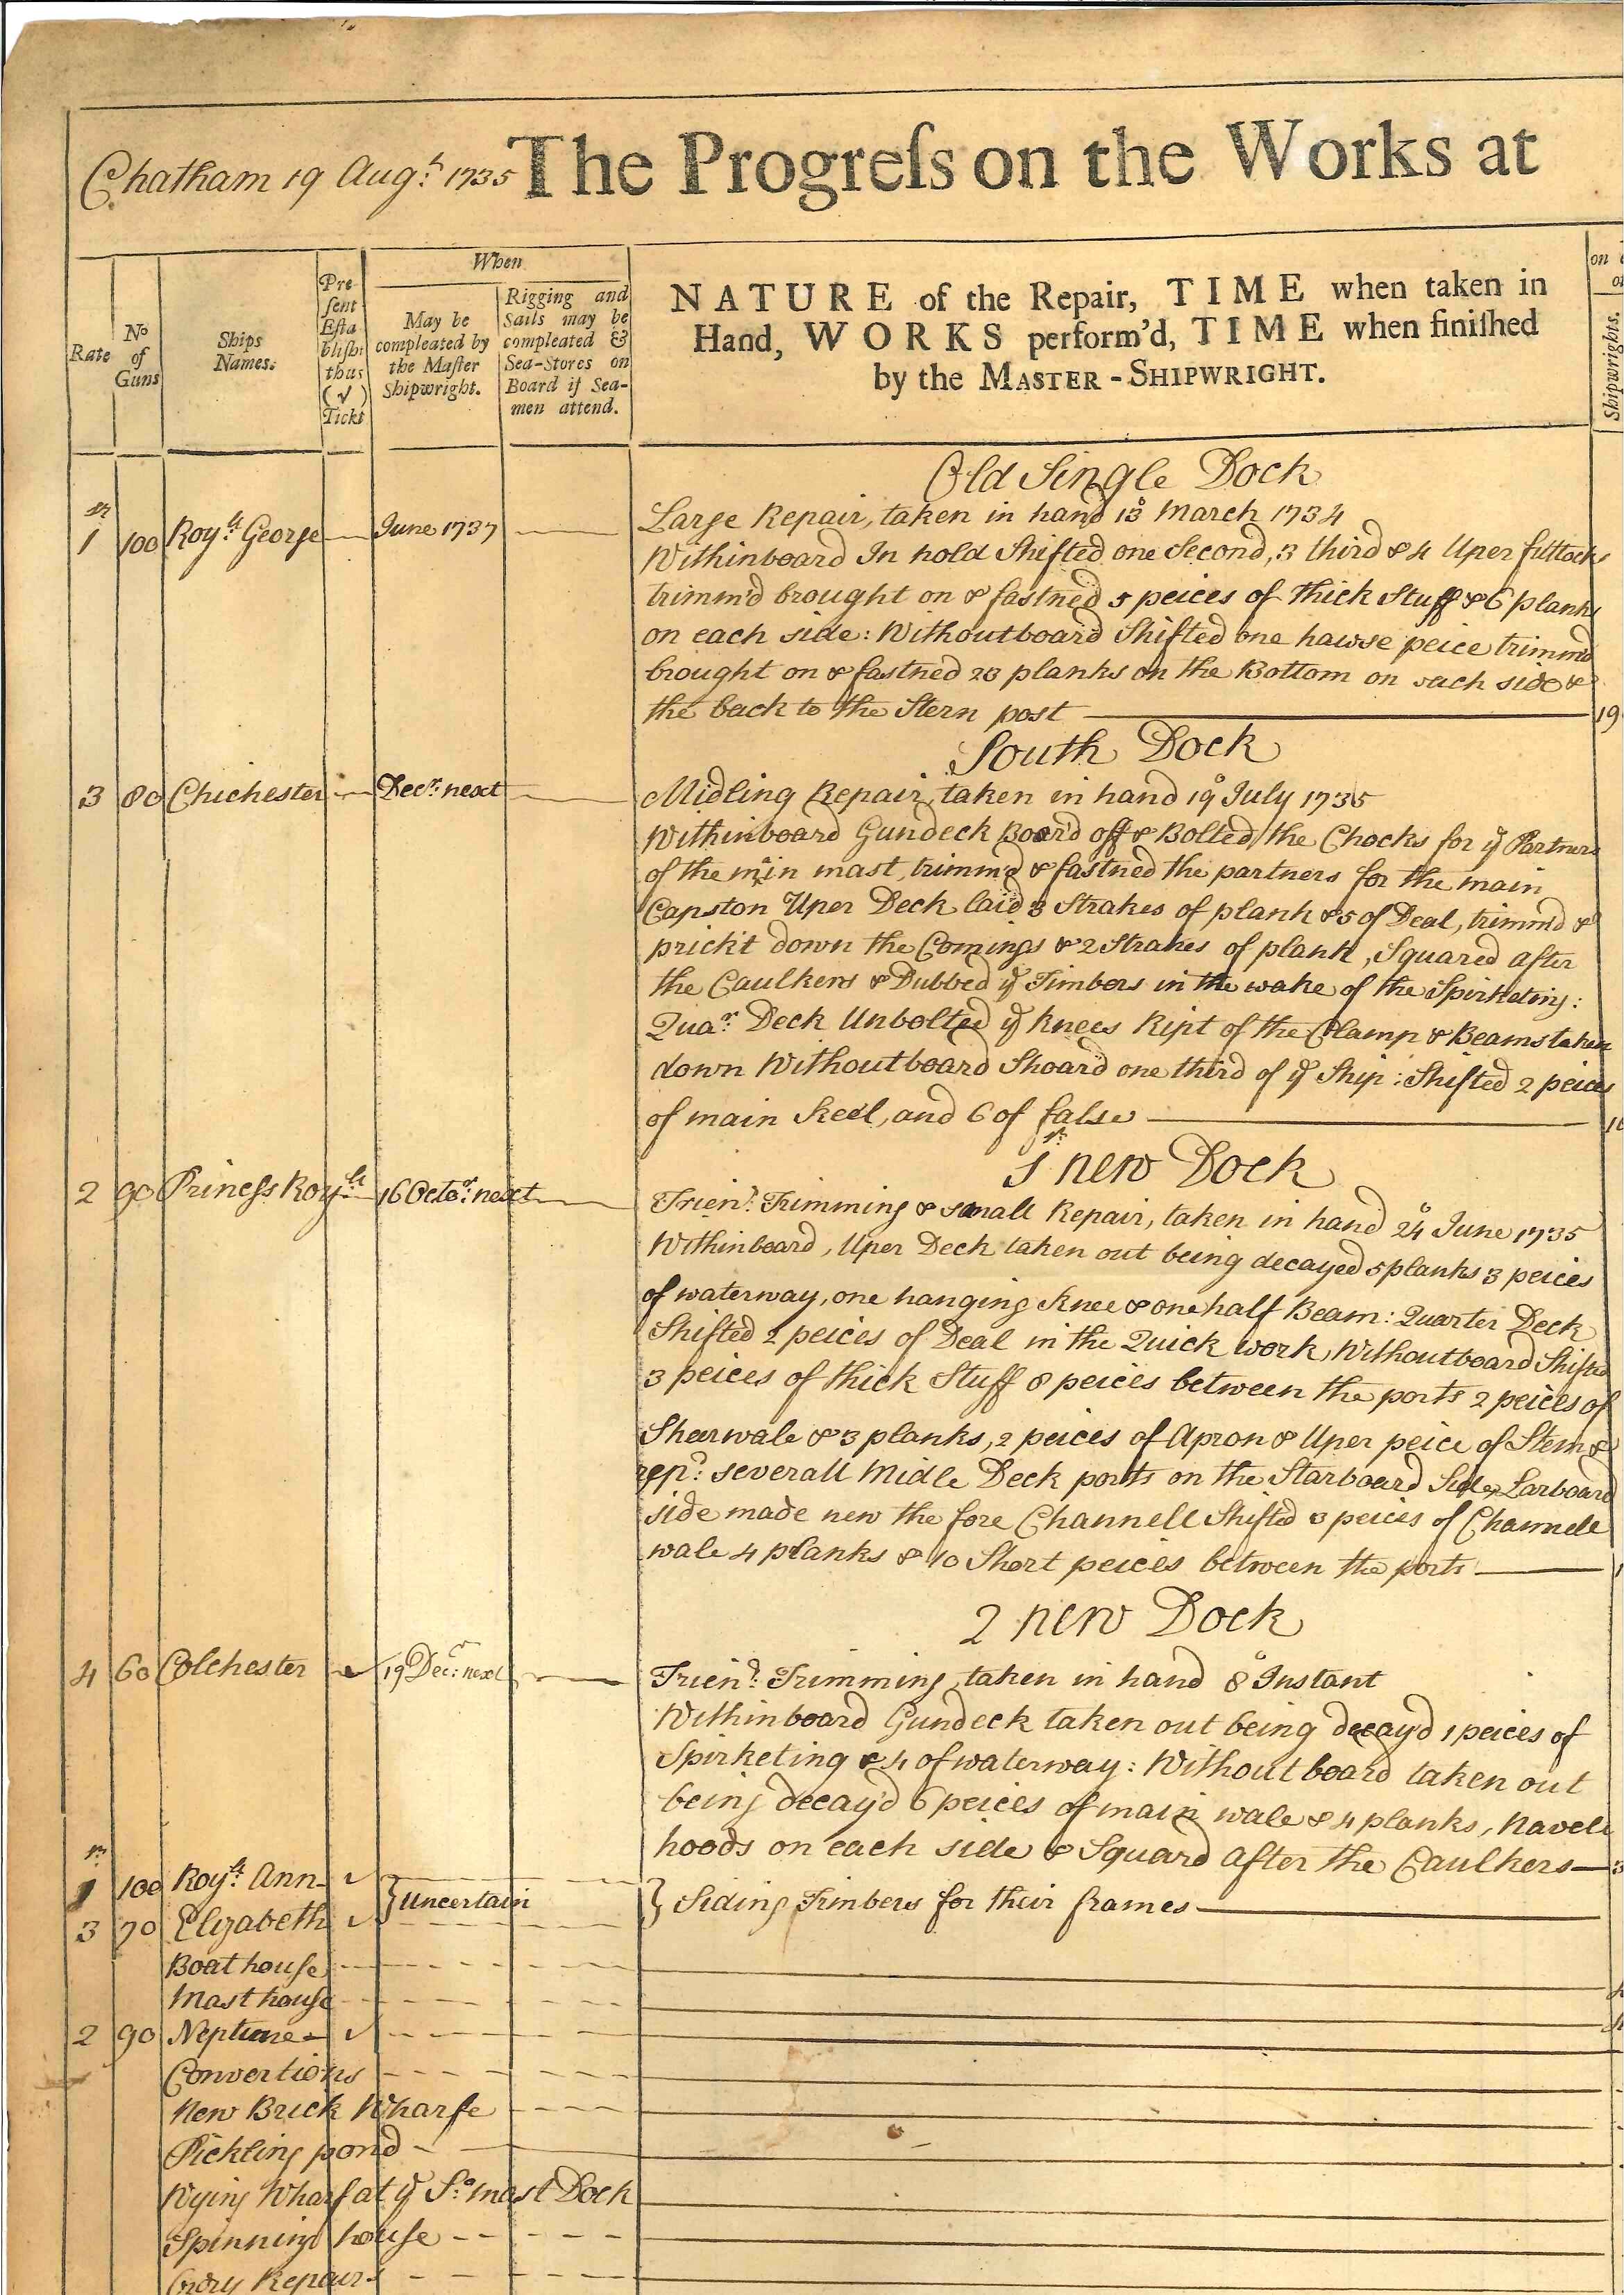 Chatham 19 Augt. 1735 The Progreſs on the Works at
Rate
No of Guns
Ships Names.
Pre ſent Eſta bliſht thus (√) Tickt
When
May be compleated by the Maſter Shipwright.
Rigging and Sails may be compleated & Sea-Stores on Board if Sea-men attend.
NATURE of the Repair, TIME when taken in
Hand, WORKS perform'd, TIME when finiſhed
by the MASTER-SHIPWRIGHT.
on
Shipwrights.
Old Single Dock
1 100 Royll. George June 1737 Large Repair, taken in hand 13o March 1734
Withinboard In hold Shifted one Second, 3 third & 4 Uper futtocks
trimm'd brought on & fastned 5 peices of thick Stuff & 6 planks
on each side: Withoutboard Shifted one hawse peice trimm'd
brought on & fastned 23 planks on the Bottom on each side &
the back to the Stern post 19
South Dock
3 80 Chichester Decr. next Midling Repair, taken in hand 19o July 1735
Withinboard Gundeck Boar'd off & Bolted the Chocks for ye Partners
of the main mast, trimm'd & fastned the partners for the main
Capston Uper Deck laid 3 Strakes of plank & 5 of Deal, trimm'd &
prickt down the Comings & 2 Strakes of plank, Squared after
the Caulkers & Dubbed ye Timbers in the wake of the Spirketing:
Quar. Deck Unbolted ye knees Ript of the Clamp & Beams taken
down Withoutboard Shoard one third of ye Ship: Shifted 2 peices
of main keel, and 6 of false
1st new Dock
2 90 Princess Royll. 16 Octor. next Triend. Trimming & small Repair, taken in hand 24o June 1735
Withinboard, Uper Deck taken out being decayed 5 planks 3 peices
of waterway, one hanging knee & one half Beam: Quarter Deck
Shifted 2 peices of Deal in the Quick work, Withoutboard Shifted
3 peices of thick Stuff 8 peices between the ports 2 peices of
Shearwale & 3 planks, 2 peices of Apron & Uper peice of Stem &
repd. severall Midle Deck ports on the Starboard Side, Larboard
side made new the fore Channell Shifted 3 peices of Channell
wale 4 planks & 10 Short peices between the ports
2 new Dock
4 60 Colchester √ 19 Decr. next Triend. Trimming, taken in hand 8o Instant
Withinboard Gundeck taken out being decay'd 1 peices of
Spirketing & 4 of waterway: Without board taken out
being decay'd 6 peices of main wale & 4 planks, Navell
hoods on each side & Squard after the Caulkers 3
1 100 Royll. Ann √
} Uncertain } Siding Timbers for their frames
3 70 Elizabeth √
Boat house
Mast house
2 90 Neptune √
Convertions
New Brick Wharfe
Pickling pond
Wying Wharf at ye So. mast Dock
Spinning house
Ordry Repairs